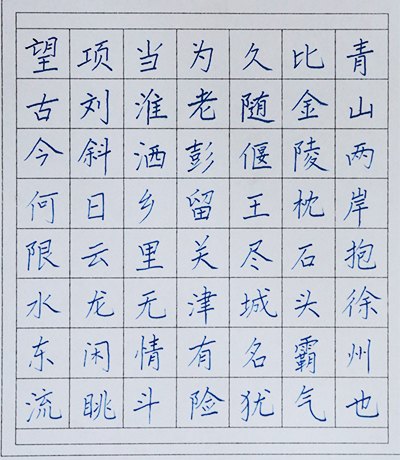 青山两岸抱徐州也
比金陵枕石头霸气
久随偃王尽城名犹
为老彭留关津有险
当淮洒乡里无情斗
项刘斜日云龙闲眺
望古今何限水东流